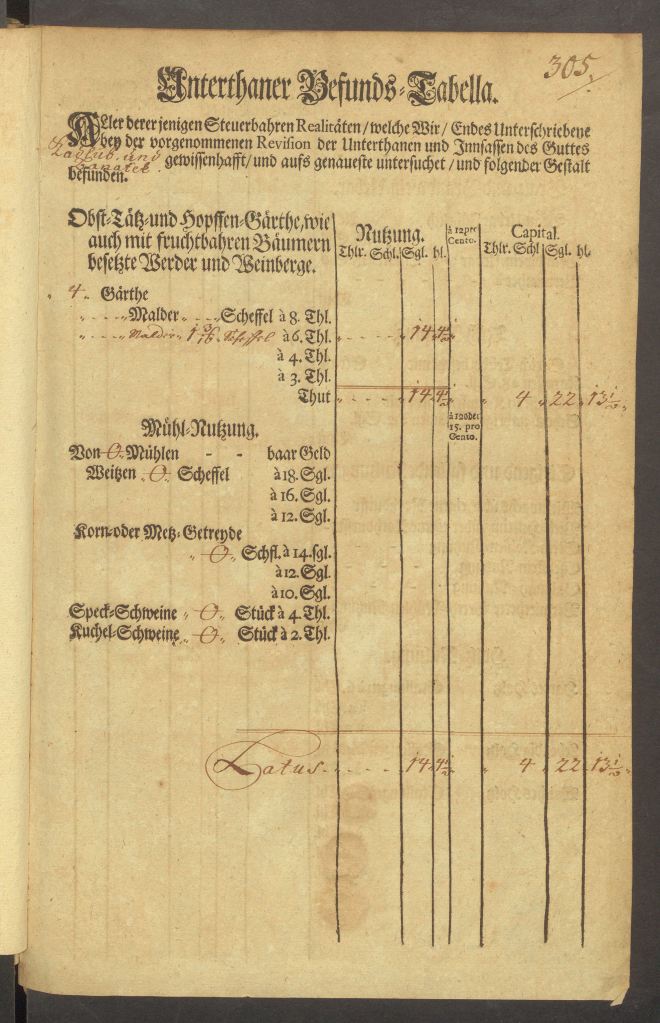 305.
Unterthaner Befunds-Tabella.
Aller derer jenigen Steuerbahren Realitäten/welche Wir/ Endes Unterschriebene
bey der vorgenommenen Revision der Unterthanen und Innsassen des Guttes
gewissenhafft/und aufs genaueste untersuchet/und folgender Gestalt
befunden.
Obst-Tätz-und Hopffen-Gärthe,wie
auch mit fruchtbahren Bäumern
besetzte Werder und Weinberge.
Nutzung. à 12 pro Cento. Capital.
Thlr. Schl. Sgl. hl. Thlr. Schl Sgl. hl.
4 Gärthe
Malder Scheffel à 8. Thl.
Malder Scheffel à 6. Thl. 14
à 4. Thl.
à 3. Thl.
Thut 14 4 22
à 12 oder
15. pro
Cento.
Mühl-Nutzung.
Von 0 Mühlen - - baar Geld
Weitzen 0 Scheffel à 18. Sgl.
à 16. Sgl.
à 12. Sgl.
Korn-oder Metz-Getreyde
0 Schfl. à 14. sgl.
à 12. Sgl.
à 10. Sgl.
Speck-Schweine 0 Stück à 4. Thl.
Kuchel-Schweine 0 Stück à 2. Thl.
Latus 14 4 22